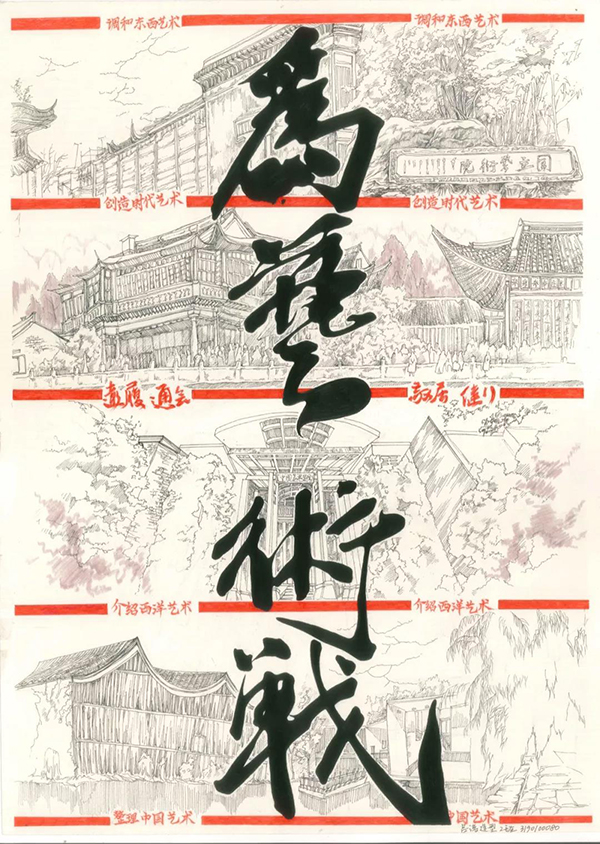 调和东西艺术 调和东西艺术
国立藝術院
创造时代艺术 创造时代艺术
遠履 通会 敬居 健行
介绍西洋艺术 介绍西洋艺术
整理中国艺术 中国艺术
為
藝
術
戰